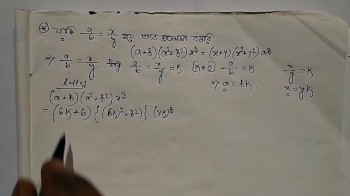 ⊛ যদি a/b = x/y হয় তবে প্রমাণ করি
(a+b)(a²+b²)x³ = (x+y)(x²+y²)a³
⇒ a/b = x/y
a/b = x/y = k
x/y = k
⇒ a = bk,
x = yk
(a+b)(a²+b²)x³
= (bk+b){(bk)²+b²}(yk)³